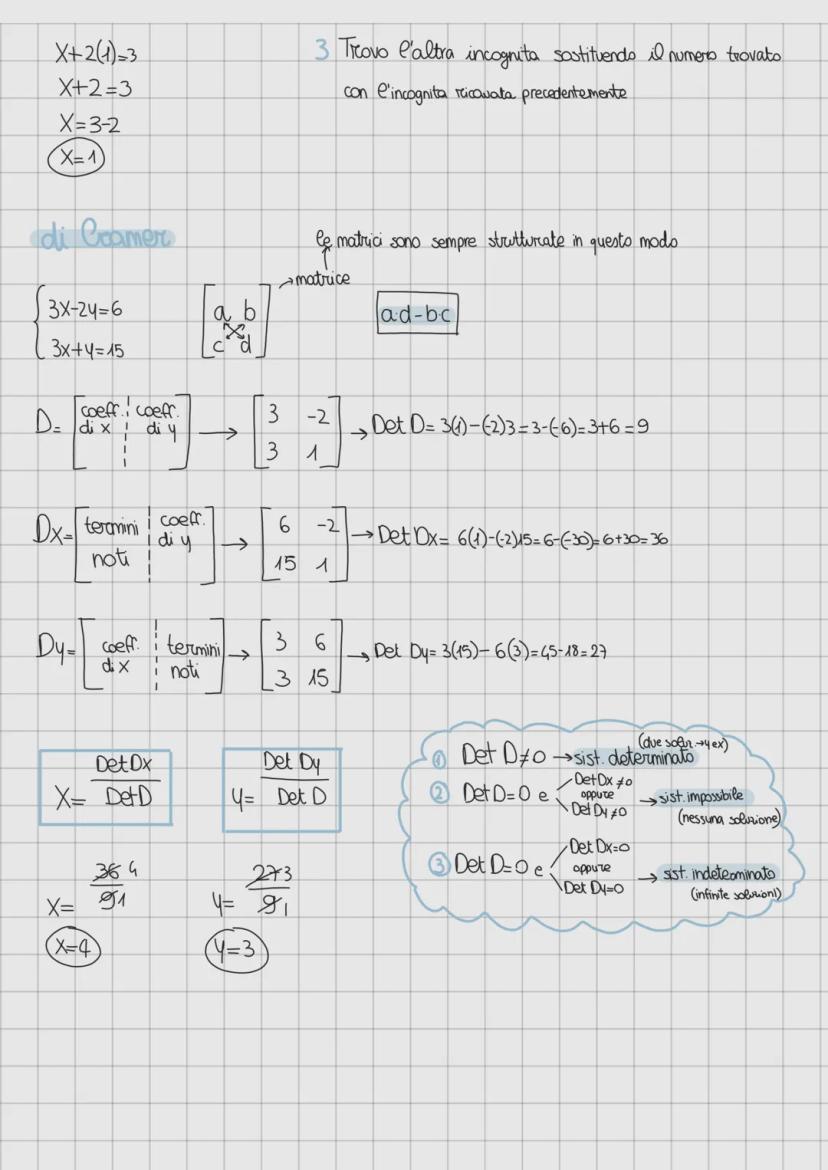 x+2(1)=3
x+2=3
x=3-2
x=1
3 Trovo l'altra incognita sostituendo il numero trovato
con l'incognita ricavata precedentemente
di Cramer
le matrici sono sempre strutturate in questo modo
→matrice
3x-2y=6
3x+y=15
a b
c d
a·d-b·c
D= [coeff. di x | coeff. di y] → [3 -2 3 1] → Det D= 3(1)-(-2)3=3-(-6)=3+6=9
Dx= [termini noti | coeff. di y] → [6 -2 15 1] → Det Dx= 6(1)-(-2)15=6-(-30)=6+30=36
Dy= [coeff. di x | termini noti] → [3 6 3 15] → Det Dy= 3(15)-6(3)=45-18=27
x= Det Dx / Det D
y= Det Dy / Det D
x= 36 4 / 9 1
x=4
y= 27 3 / 9 1
y=3
① Det D≠0 → sist. determinato
② Det D=0 e Det Dx≠0 oppure Det Dy≠0 → sist. impossibile
(nessuna soluzione)
③ Det D=0 e Det Dx=0 oppure Det Dy=0 → sist. indeterminato
(infinite soluzioni)